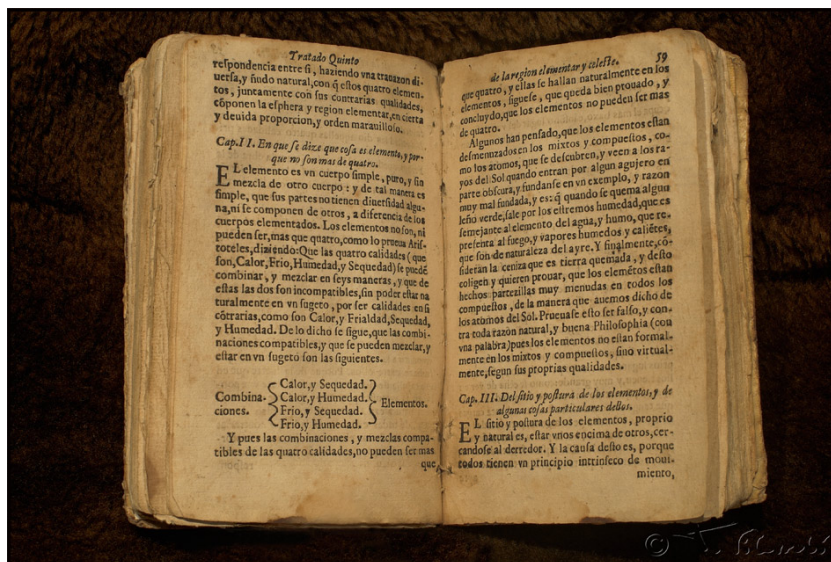 Tratado Quinto
respondencia entre si, haziendo vna trauazon di-
uersa, y ñudo natural, con q̃ estos quatro elemen-
tos, juntamente con sus contrarias qualidades,
cõponen la esphera y region elementar, en cierta
y deuida proporcion, y orden marauilloso.
Cap. II. En que se dize que cosa es elemento, y por-
que no son mas de quatro.
EL elemento es vn cuerpo simple, puro, y sin
mezcla de otro cuerpo: y de tal manera es
simple, que sus partes no tienen diuersidad algu-
na, ni se componen de otros, a diferencia de los
cuerpos elementados. Los elementos no son, ni
pueden ser, mas que quatro, como lo prueua Aris-
toteles, diziendo: Que las quatro calidades (que
son, Calor, Frio, Humedad, y Sequedad) se puedẽ
combinar, y mezclar en seys maneras, y que de
estas las dos son incompatibles, sin poder estar na
turalmente en vn sugeto, por ser calidades en si
cõtrarias, como son Calor, y Frialdad, Sequedad,
y Humedad. De lo dicho se sigue, que las combi-
naciones compatibles, y que se pueden mezclar, y
estar en vn sugeto son las siguientes.
Combina-
ciones.
Calor, y Sequedad.
Calor, y Humedad.
Frio, y Sequedad.
Frio, y Humedad.
Elementos.
Y pues las combinaciones, y mezclas compa-
tibles de las quatro calidades, no pueden ser mas
que
de la region elementar y celeste. 59
que quatro, y ellas se hallan naturalmente en los
elementos, siguese, que queda bien prouado, y
concluydo, que los elementos no pueden ser mas
de quatro.
Algunos han pensado, que los elementos estan
desmenuzados en los mixtos y compuestos, co-
mo los atomos, que se descubren, y veen a los ra-
yos del Sol quando entran por algun agujero en
parte obscura, y fundanse en vn exemplo, y razon
muy mal fundada, y es: q̃ quando se quema algun
leño verde, sale por los estremos humedad, que es
semejante al elemento del agua, y humo, que re-
presenta al fuego, y vapores humedos y caliẽtes,
que son de naturaleza del ayre. Y finalmente, cõ-
sideran la ceniza que es tierra quemada, y desto
coligen y quieren prouar, que los elemẽtos estan
hechos partezillas muy menudas en todos los
compuestos, de la manera que auemos dicho de
los atomos del Sol. Prueuase esto ser falso, y con-
tra toda razon natural, y buena Philosophia (con
vna palabra) pues los elementos no estan formal-
mente en los mixtos y compuestos, sino virtual-
mente, segun sus proprias qualidades.
Cap. III. Del sitio y postura de los elementos, y de
algunas cosas particulares dellos.
EL sitio y postura de los elementos, proprio
y natural es, estar vnos encima de otros, cer-
candose al derredor. Y la causa desto es, porque
todos tienen vn principio intrinseco de moui-
miento,
©